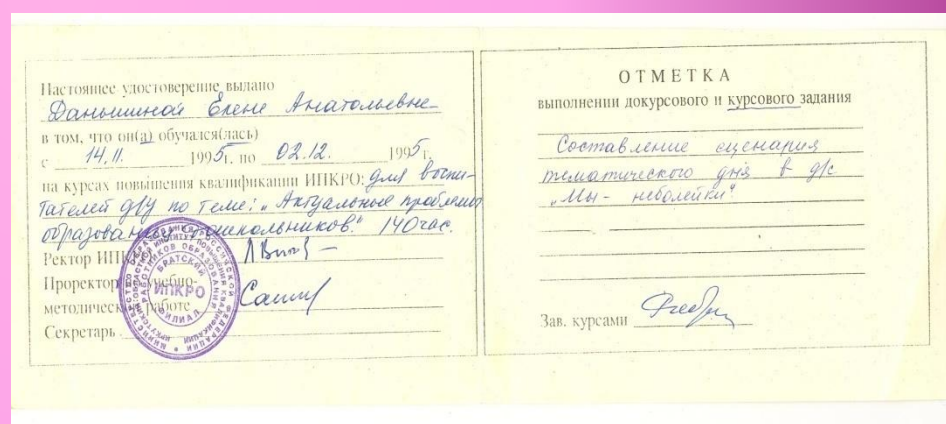 Настоящее удостоверение выдано
Даньшиной Елене Анатольевне
в том, что он(а) обучался(лась)
с 14.11. 1995г. по 02.12. 1995г.
на курсах повышения квалификации ИПКРО: для воспи-
тателей д/у по теме: „Актуальные проблемы
образования дошкольников." 140час.
Ректор ИПКРО
Проректор по учебно-
методической работе
Секретарь
БРАТСКИЙ
ИПКРО
ФИЛИАЛ
ОТМЕТКА
выполнении докурсового и курсового задания
Составление сценария
тематического дня в д/с
„Мы - неболейки"
Зав. курсами